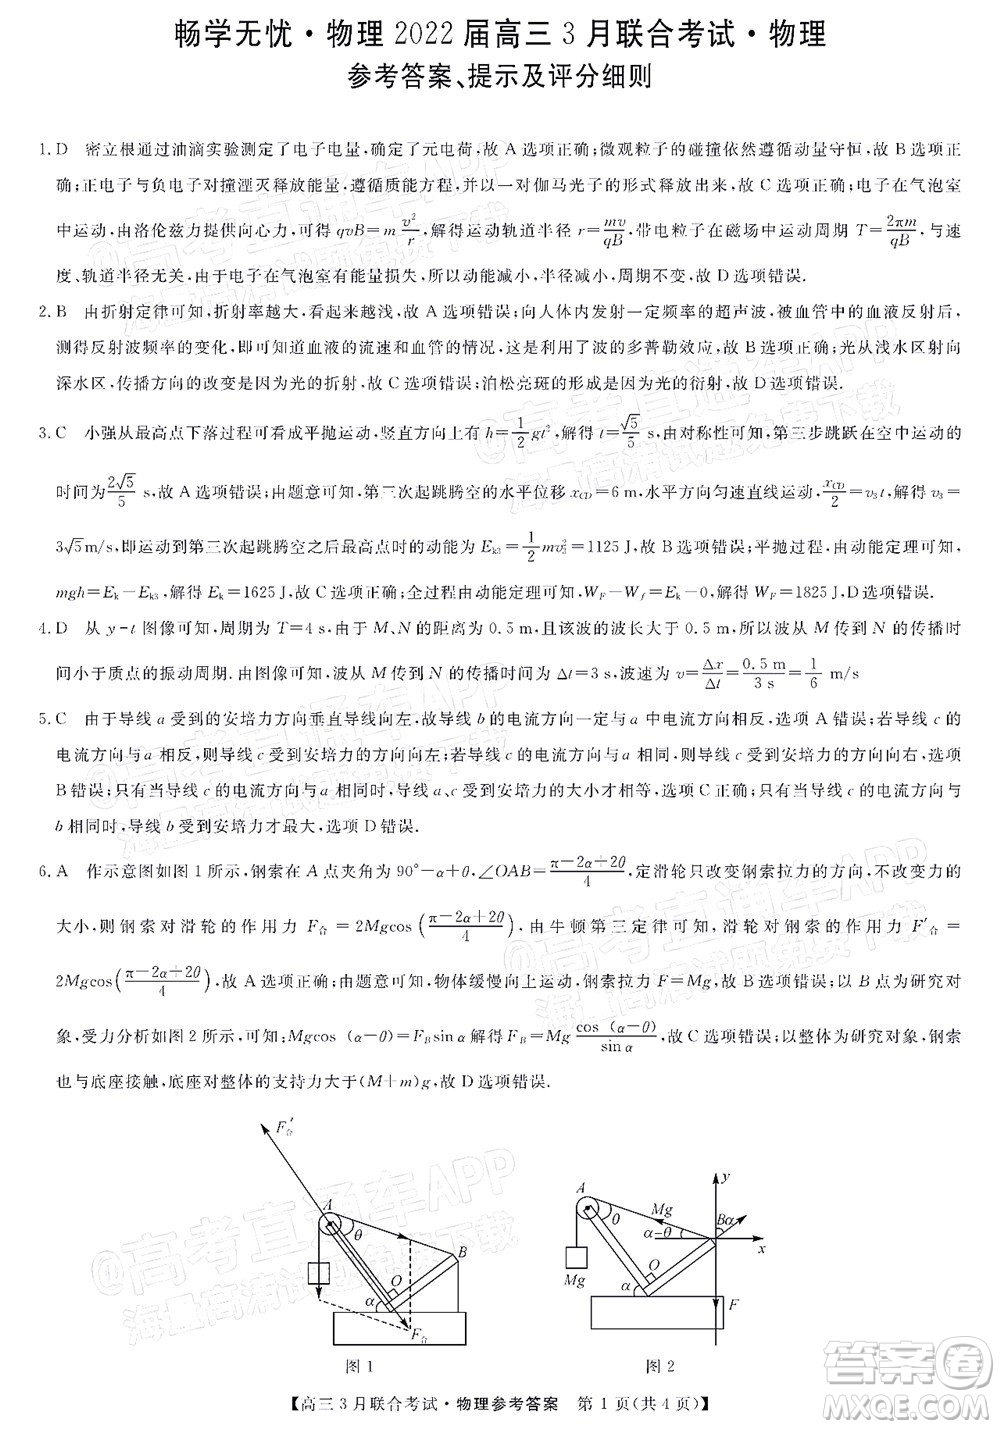 畅学无忧·物理 2022 届高三 3 月联合考试·物理
参考答案、提示及评分细则
1. D 密立根通过油滴实验测定了电子电量,确定了元电荷,故 A 选项正确;微观粒子的碰撞依然遵循动量守恒,故 B 选项正
确;正电子与负电子对撞湮灭释放能量,遵循质能方程,并以一对伽马光子的形式释放出来,故 C 选项正确;电子在气泡室
中运动,由洛伦兹力提供向心力,可得 qvB=m v²/r,解得运动轨道半径 r=mv/qB,带电粒子在磁场中运动周期 T=2πm/qB,与速
度、轨道半径无关.由于电子在气泡室有能量损失,所以动能减小,半径减小,周期不变,故 D 选项错误.
2. B 由折射定律可知,折射率越大,看起来越浅,故 A 选项错误;向人体内发射一定频率的超声波,被血管中的血液反射后,
测得反射波频率的变化,即可知道血液的流速和血管的情况,这是利用了波的多普勒效应,故 B 选项正确;光从浅水区射向
深水区,传播方向的改变是因为光的折射,故 C 选项错误;泊松亮斑的形成是因为光的衍射,故 D 选项错误.
3. C 小强从最高点下落过程可看成平抛运动,竖直方向上有 h=1/2 gt²,解得 t=√5/5 s,由对称性可知,第三步跳跃在空中运动的
时间为 2√5/5 s,故 A 选项错误;由题意可知,第三次起跳腾空的水平位移 x_CD=6 m,水平方向匀速直线运动,x_CD/2=v₃t,解得 v₃=
3√5 m/s,即运动到第三次起跳腾空之后最高点时的动能为 E_k3=1/2 mv₃²=1125 J,故 B 选项错误;平抛过程,由动能定理可知,
mgh=E_k−E_k3,解得 E_k=1625 J,故 C 选项正确;全过程由动能定理可知,W_F−W_f=E_k−0,解得 W_F=1825 J,D 选项错误.
4. D 从 y-t 图像可知,周期为 T=4 s,由于 M、N 的距离为 0.5 m,且该波的波长大于 0.5 m,所以波从 M 传到 N 的传播时
间小于质点的振动周期.由图像可知,波从 M 传到 N 的传播时间为 Δt=3 s,波速为 v=Δx/Δt=0.5 m/3 s=1/6 m/s
5. C 由于导线 a 受到的安培力方向垂直导线向左,故导线 b 的电流方向一定与 a 中电流方向相反,选项 A 错误;若导线 c 的
电流方向与 a 相反,则导线 c 受到安培力的方向向左;若导线 c 的电流方向与 a 相同,则导线 c 受到安培力的方向向右,选项
B 错误;只有当导线 c 的电流方向与 a 相同时,导线 a、c 受到安培力的大小才相等,选项 C 正确;只有当导线 c 的电流方向与
b 相同时,导线 b 受到安培力才最大,选项 D 错误.
6. A 作示意图如图 1 所示,钢索在 A 点夹角为 90°−α+θ,∠OAB=(π−2α+2θ)/4,定滑轮只改变钢索拉力的方向,不改变力的
大小,则钢索对滑轮的作用力 F合=2Mgcos((π−2α+2θ)/4),由牛顿第三定律可知,滑轮对钢索的作用力 F′合=
2Mgcos((π−2α+2θ)/4),故 A 选项正确;由题意可知,物体缓慢向上运动,钢索拉力 F=Mg,故 B 选项错误;以 B 点为研究对
象,受力分析如图 2 所示,可知:Mgcos (α−θ)=F_B sin α 解得 F_B=Mg cos (α−θ)/sin α,故 C 选项错误;以整体为研究对象,钢索
也与底座接触,底座对整体的支持力大于(M+m)g,故 D 选项错误.
F′合
A
θ
B
O
α
F合
图 1
y
A
Mg
Bα
θ
α−θ
x
O
Mg
α
F
图 2
【高三 3 月联合考试·物理参考答案 第 1 页(共 4 页)】
@高考直通车APP
海量高清试题免费下载
@高考直通车APP
海量高清试题免费下载
@高考直通车APP
海量高清试题免费下载
@高考直通车APP
海量高清试题免费下载
@高考直通车APP
海量高清试题免费下载
答案圈
MXQE.COM